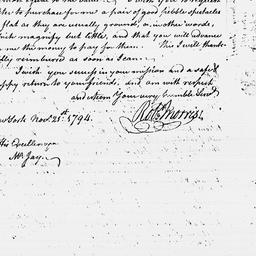 to purchase for me a pair of good pebble spectacles
flat as they are usually ground, or, in other words,
magnify but little, and that you will advance
me the money to pay for them. This I will thank-
fully reimburse as soon as I can.
I wish you success in your mission and a safe
happy return to your friends, and am with respect
and esteem Your very humble Serv.t
Rob.t Morris
York Nov.r 21st 1794.
His Excellency
Mr. Jay